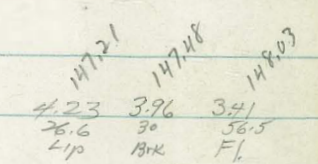 147.21 147.48 148.03
4.23 3.96 3.41
26.6 30 56.5
Lip Brk Fl.